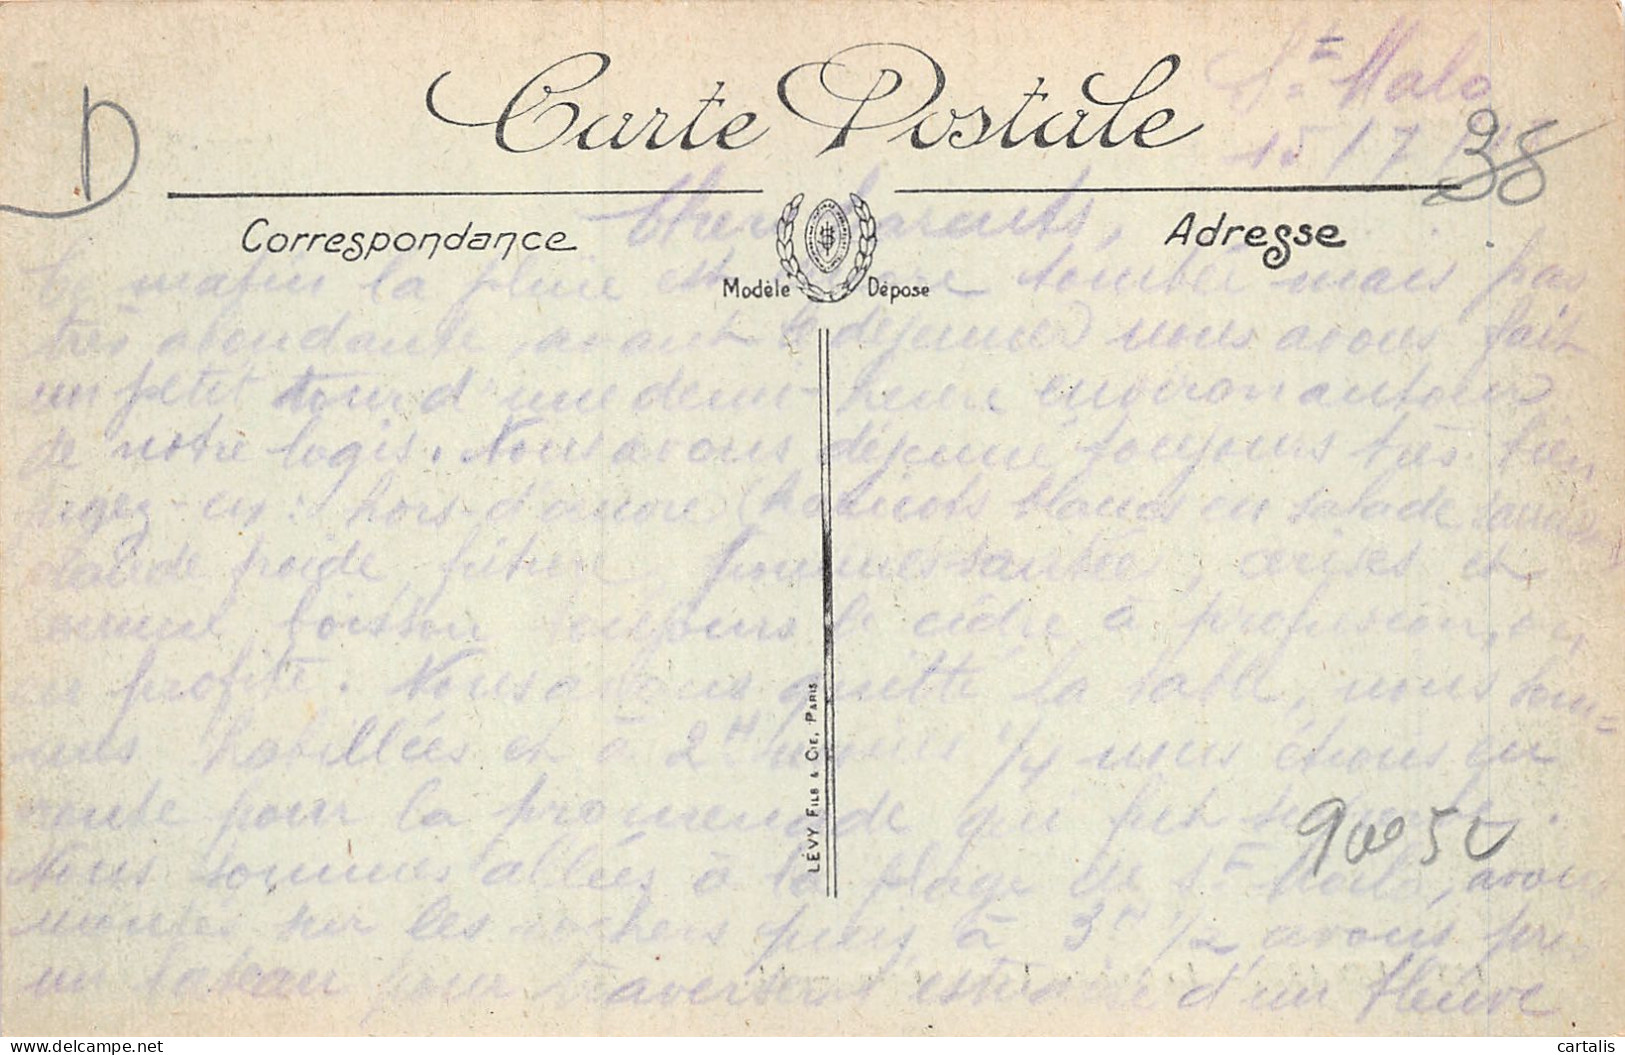 St Malo
15/7/
Carte Postale
D
38
Correspondance
Adresse
Modèle Déposé
Chers Parents,
Ce matin la pluie est tombée mais pas
très abondante, avant le déjeuner nous avons fait
un petit tour d'une demi-heure environ autour
de notre logis. Nous avons déjeuné toujours très bien
jugez-en : hors-d'œuvre (haricots blancs en salade
froide, friture, pommes sautées, cerises et
comme boisson toujours le cidre à profusion, on
en profite. Nous avons quitté la table, nous som=
mes habillées et à 2H 1/4 nous étions en
route pour la promenade qui fut
Nous sommes allées à la plage de St Malo, avons
montés sur les rochers puis à 3H 1/2 avons pris
un bateau pour traverser d'un fleuve
LÉVY FILS & CIE, PARIS